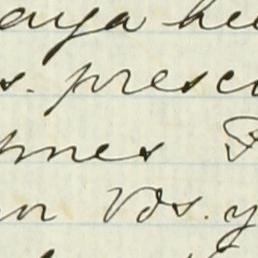 aya he
s. presc
mes F
n Vds. y